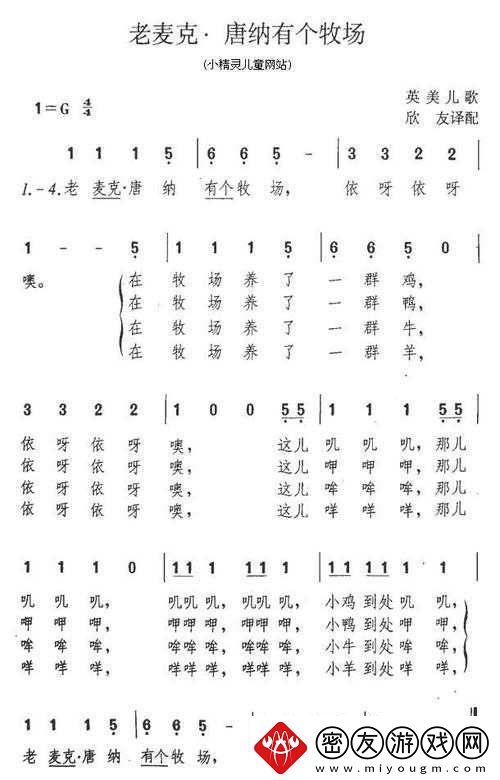 老麦克·唐纳有个牧场
(小精灵儿童网站)
1=G 4/4
英美儿歌
欣 友译配
1 1 1 5̣ | 6̣ 6̣ 5̣ - | 3 3 2 2
1.-4.老 麦克·唐 纳 有个牧 场， 依 呀 依 呀
1 - - 5̣ | 1 1 1 5̣ | 6̣ 6̣ 5̣ 0
噢。 在 牧 场 养 了 一 群 鸡，
在 牧 场 养 了 一 群 鸭，
在 牧 场 养 了 一 群 牛，
在 牧 场 养 了 一 群 羊，
3 3 2 2 | 1 0 0 5̣ 5̣ | 1 1 1 5̣ 5̣
依 呀 依 呀 噢， 这儿 叽 叽 叽，那儿
依 呀 依 呀 噢， 这儿 呷 呷 呷，那儿
依 呀 依 呀 噢， 这儿 哞 哞 哞，那儿
依 呀 依 呀 噢， 这儿 咩 咩 咩，那儿
1 1 1 0 | 11 1 11 1 | 11 11 1 1
叽 叽 叽， 叽叽 叽，叽叽 叽， 小鸡 到处 叽 叽，
呷 呷 呷， 呷呷 呷，呷呷 呷， 小鸭 到处 呷 呷，
哞 哞 哞， 哞哞 哞，哞哞 哞， 小牛 到处 哞 哞，
咩 咩 咩， 咩咩 咩，咩咩 咩， 小羊 到处 咩 咩，
1 1 1 5̣ | 6̣ 6̣ 5̣ -
老 麦克·唐 纳 有个牧 场，
密友游戏网
www.miyougm.com